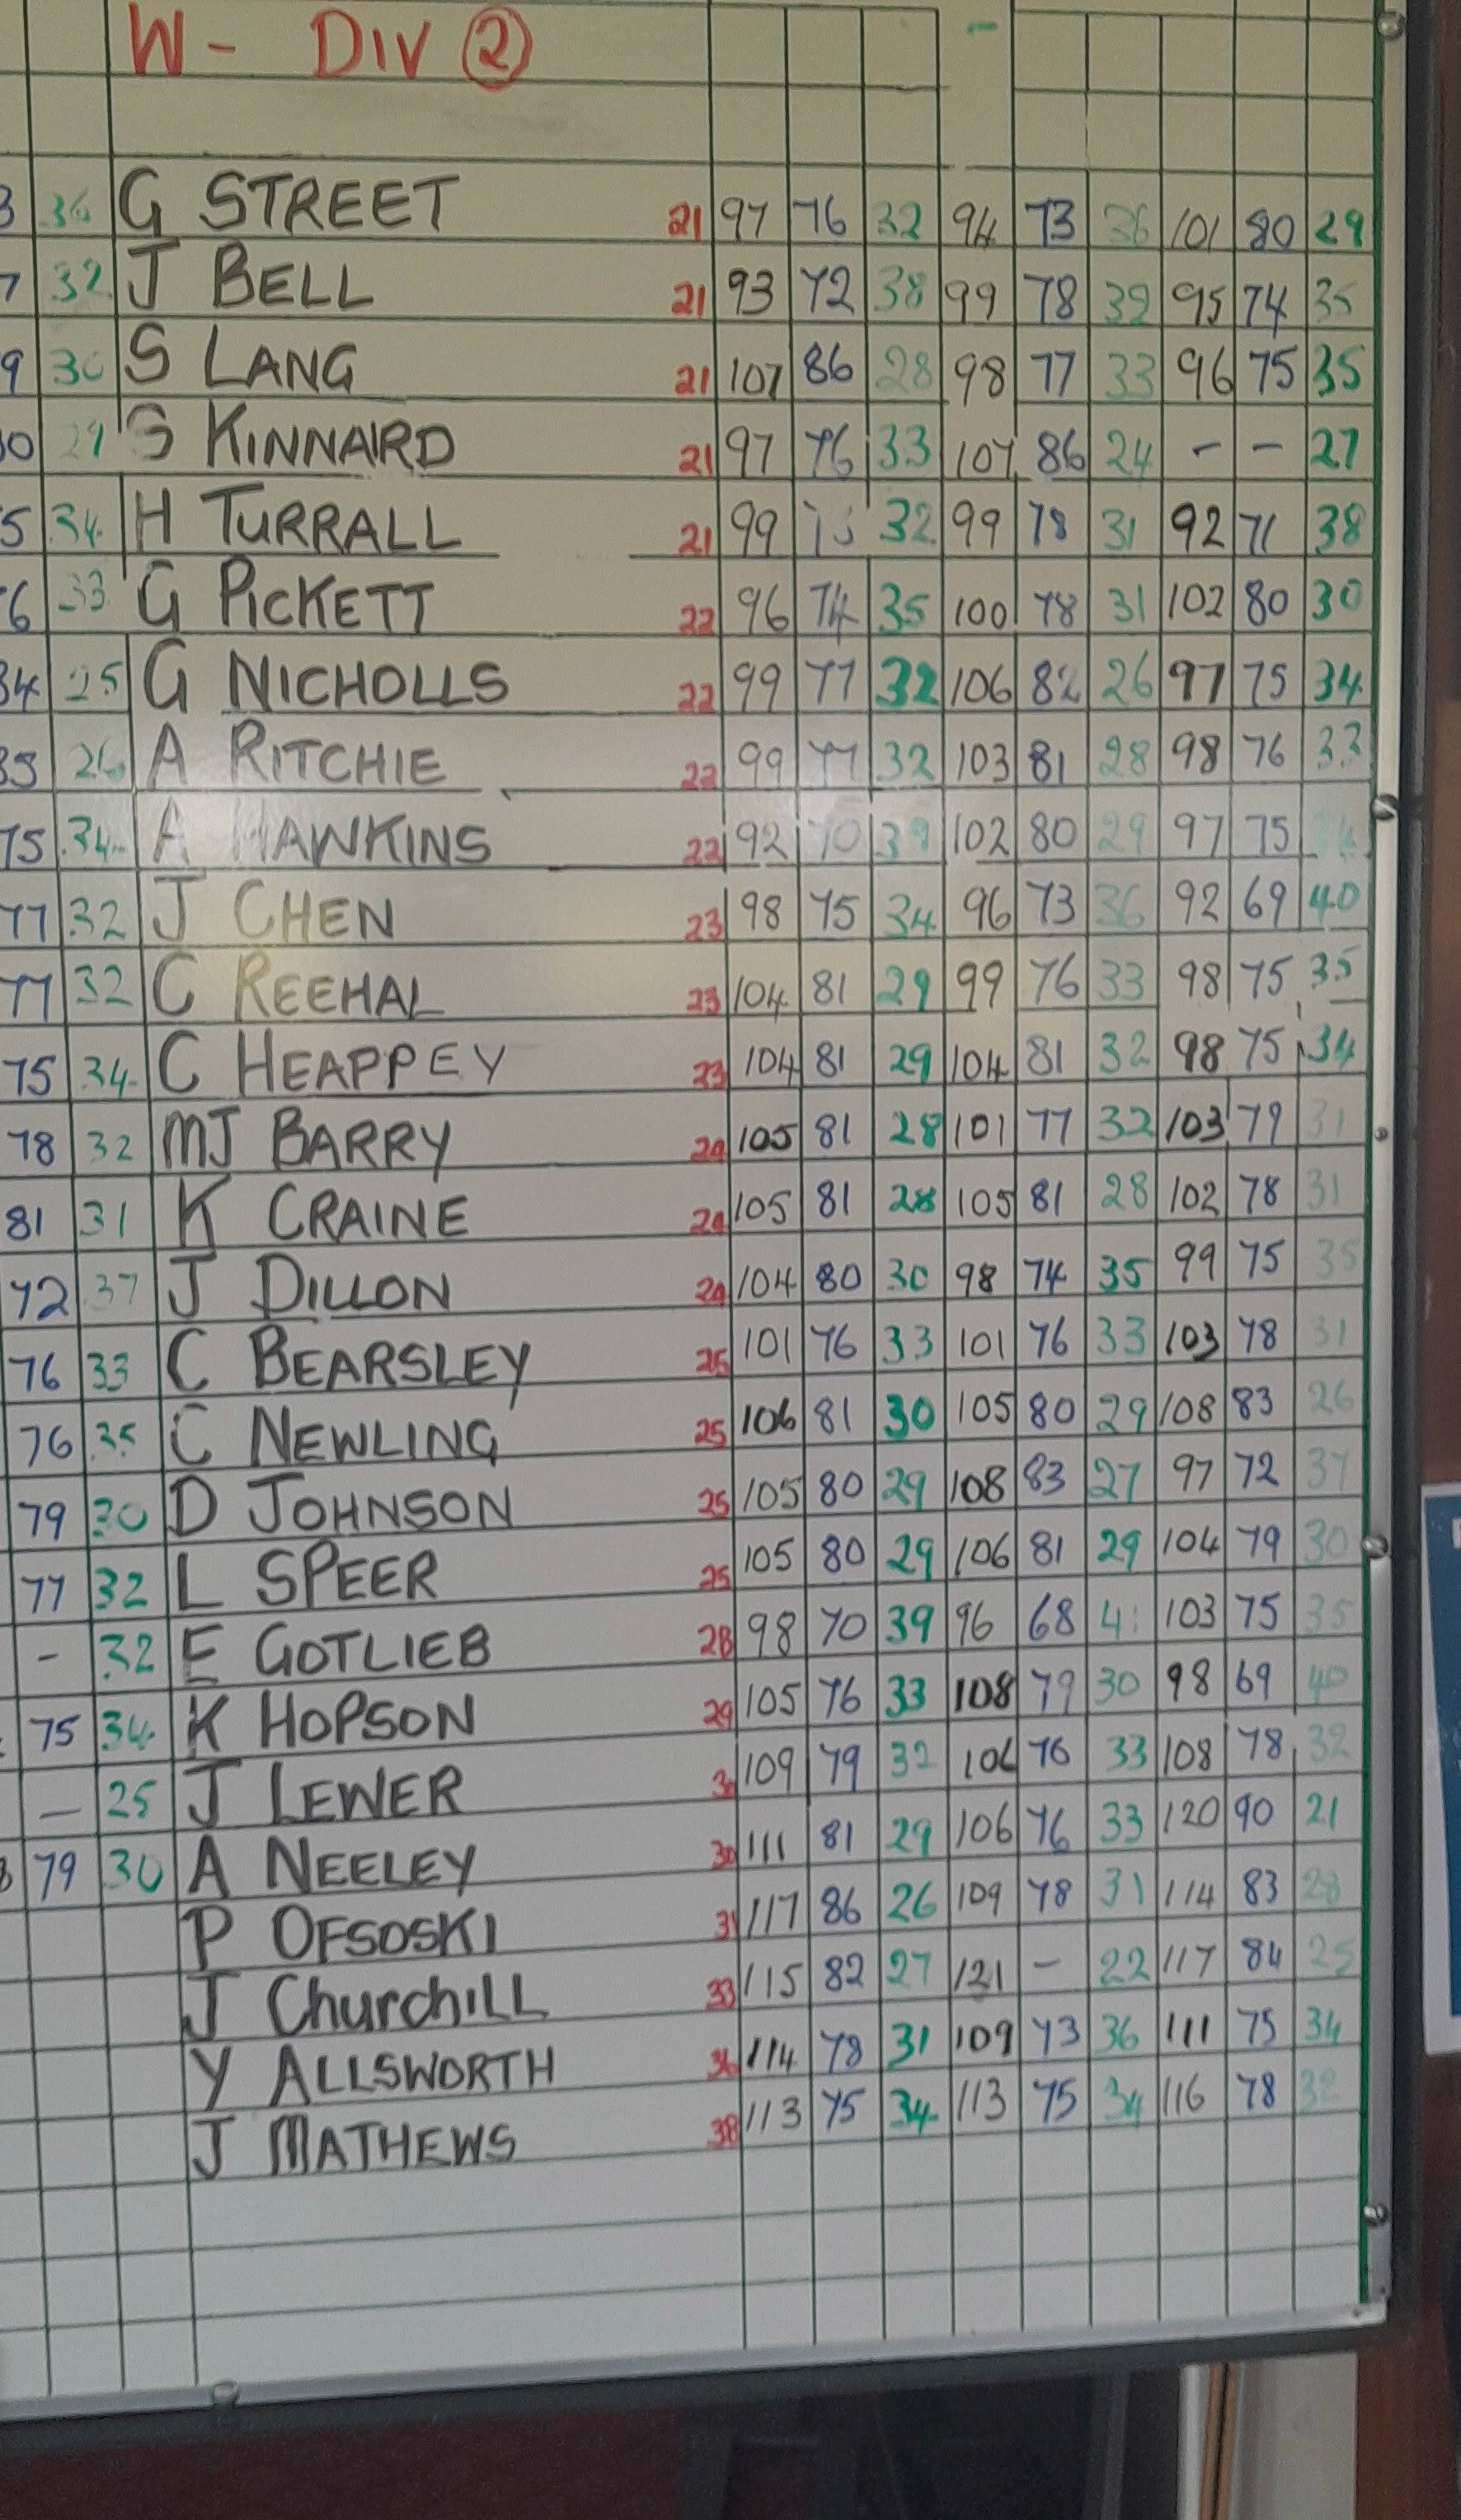 W - DIV 2
36 G STREET 21 97 76 32 94 73 36 101 80 29
7 32 J BELL 21 93 72 38 99 78 32 95 74 35
9 30 S LANG 21 107 86 28 98 77 33 96 75 35
0 29 S KINNAIRD 21 97 76 33 107 86 24 - - 27
5 34 H TURRALL 21 99 32 99 78 31 92 71 38
6 33 G PICKETT 22 96 74 35 100 78 31 102 80 30
34 25 G NICHOLLS 22 99 77 32 106 82 26 97 75 34
35 26 A RITCHIE 22 99 77 32 103 81 28 98 76 33
75 34 A HAWKINS 22 92 70 39 102 80 29 97 75
77 32 J CHEN 23 98 75 34 96 73 36 92 69 40
77 32 C REEHAL 23 104 81 29 99 76 33 98 75 35
75 34 C HEAPPEY 23 104 81 29 104 81 32 98 75 34
78 32 MJ BARRY 24 105 81 28 101 77 32 103 79 31
81 31 K CRAINE 24 105 81 28 105 81 28 102 78 31
72 37 J DILLON 24 104 80 30 98 74 35 99 75 35
76 33 C BEARSLEY 25 101 76 33 101 76 33 103 78 31
76 35 C NEWLING 25 106 81 30 105 80 29 108 83 26
79 30 D JOHNSON 25 105 80 29 108 83 27 97 72 37
77 32 L SPEER 25 105 80 29 106 81 29 104 79 30
- 32 E GOTLIEB 28 98 70 39 96 68 41 103 75 35
75 34 K HOPSON 29 105 76 33 108 79 30 98 69 40
- 25 J LEWER 30 109 79 32 106 76 33 108 78 32
79 30 A NEELEY 30 111 81 29 106 76 33 120 90 21
P OFSOSKI 31 117 86 26 109 78 31 114 83 28
J ChurchiLL 33 115 82 27 121 - 22 117 84 25
Y ALLSWORTH 36 114 78 31 109 73 36 111 75 34
J MATHEWS 38 113 75 34 113 75 34 116 78 32